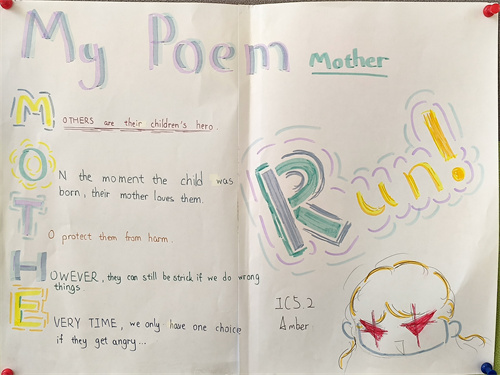 My Poem Mother
MOTHERS are their children's hero.
ON the moment the child was
born, their mother loves them.
TO protect them from harm.
HOWEVER, they can still be strick if we do wrong
things
EVERY TIME, we only have one choice
if they get angry...
Run!
IC5.2
Amber